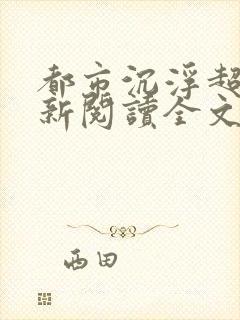 都市沉浮超
新閱讀全文
西田